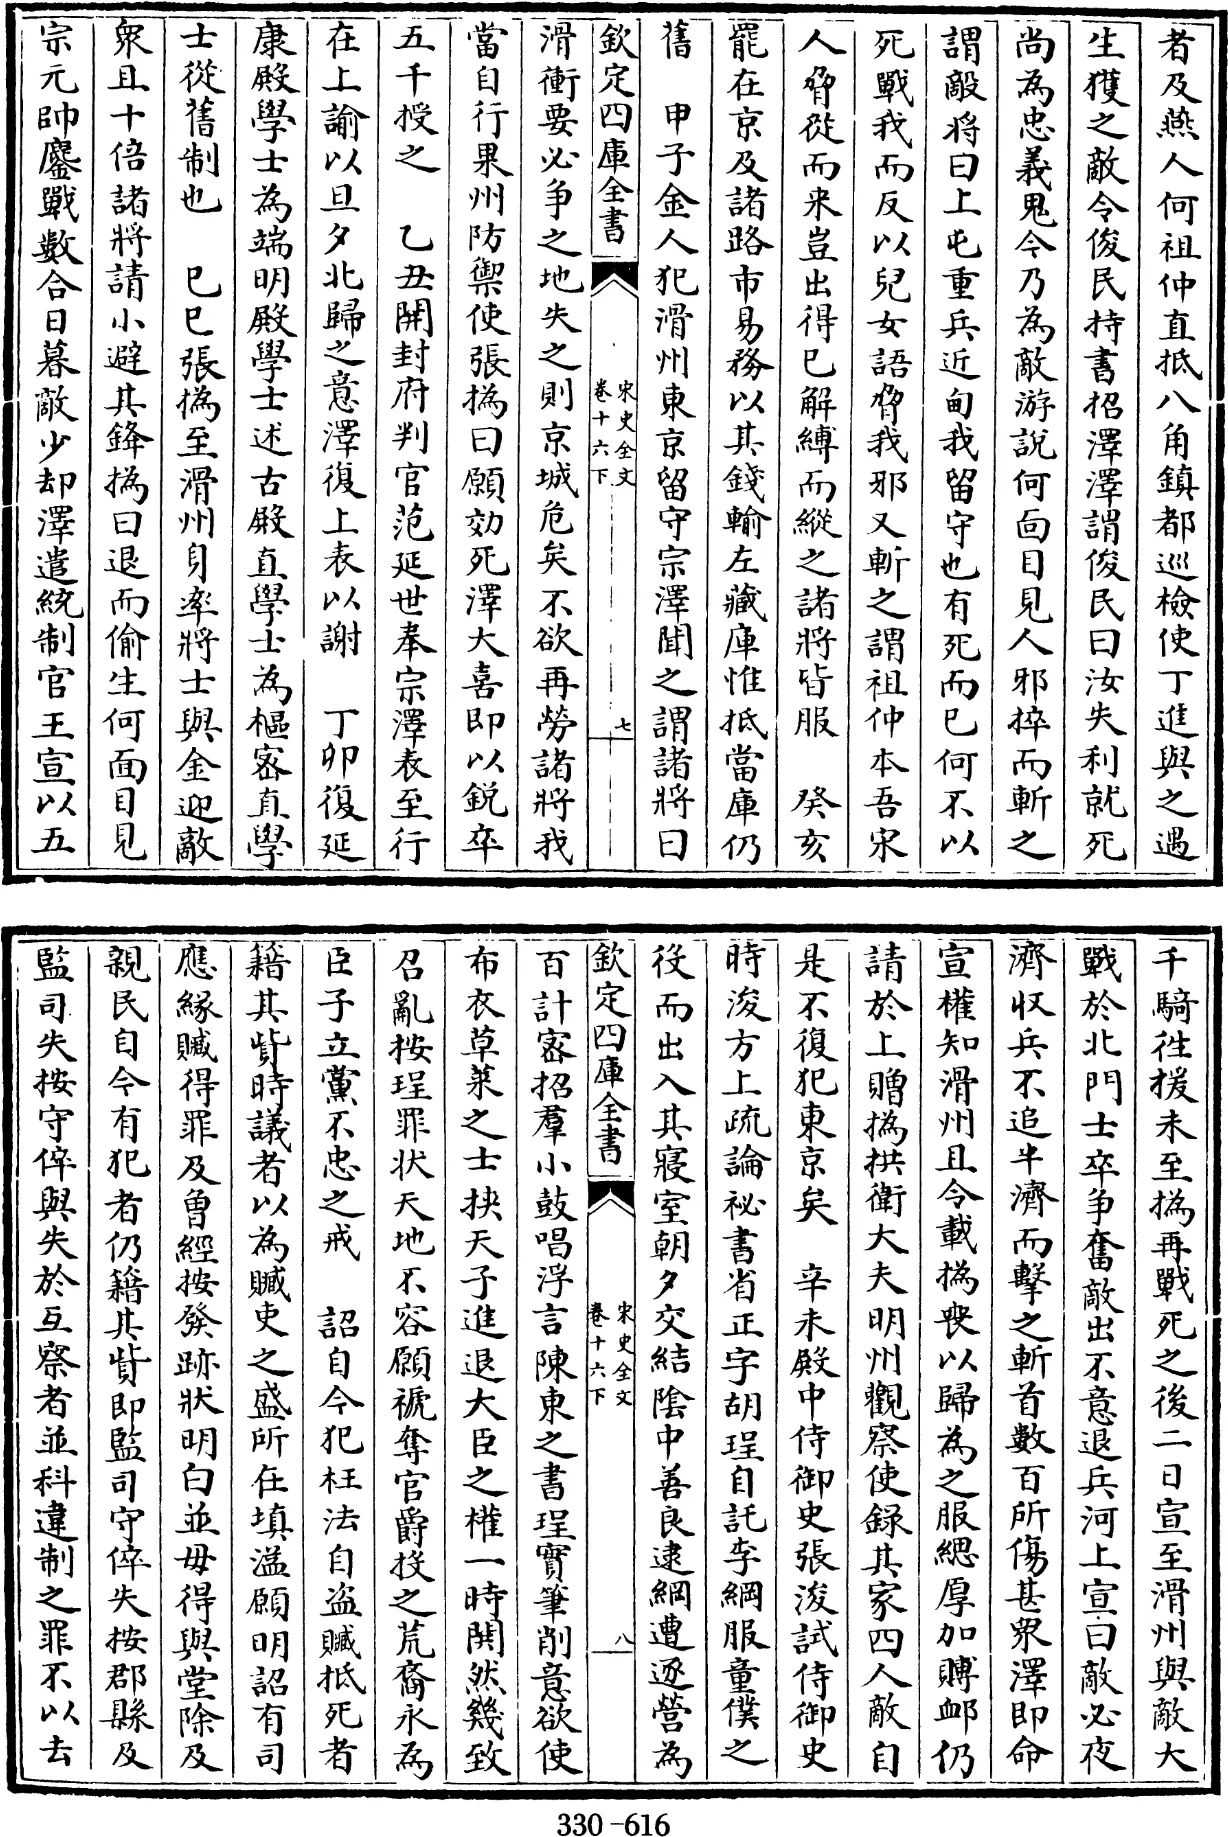 者及燕人何祖仲直抵八角鎮都巡檢使丁進與之遇
生獲之敵令俊民持書招澤澤謂俊民曰汝失利就死
尚為忠義鬼今乃為敵游説何面目見人邪捽而斬之
謂敵将曰上屯重兵近甸我留守也有死而已何不以
死戰我而反以兒女語脅我邪又斬之謂祖仲本吾宋
人脅從而來豈出得已解縛而縱之諸將皆服　癸亥
罷在京及諸路市易務以其錢輸左藏庫惟抵當庫仍
舊　甲子金人犯滑州東京留守宗澤聞之謂諸將曰
欽定四庫全書
宋史全文
卷十六下
七
滑衝要必争之地失之則京城危矣不欲再勞諸將我
當自行果州防禦使張撝曰願効死澤大喜即以鋭卒
五千授之　乙丑開封府判官范延世奉宗澤表至行
在上諭以旦夕北歸之意澤復上表以謝　丁卯復延
康殿學士為端明殿學士述古殿直學士為樞密直學
士從舊制也　己巳張撝至滑州身率將士與金迎敵
衆且十倍諸將請小避其鋒撝曰退而偷生何面目見
宗元帥鏖戰數合日暮敵少却澤遣統制官王宣以五
千騎往援未至撝再戰死之後二日宣至滑州與敵大
戰於北門士卒争奮敵出不意退兵河上宣曰敵必夜
濟收兵不追半濟而擊之斬首數百所傷甚衆澤即命
宣權知滑州且令載撝喪以歸為之服緦厚加賻卹仍
請於上贈撝拱衛大夫明州觀察使録其家四人敵自
是不復犯東京矣　辛未殿中侍御史張浚試侍御史
時浚方上疏論祕書省正字胡珵自託李綱服童僕之
役而出入其寢室朝夕交結陰中善良逮綱遭逐營為
欽定四庫全書
宋史全文
卷十六下
八
百計密招羣小鼓唱浮言陳東之書珵實筆削意欲使
布衣草萊之士挟天子進退大臣之權一時鬨然幾致
召亂按珵罪状天地不容願褫奪官爵投之荒裔永為
臣子立黨不忠之戒　詔自今犯枉法自盗贓抵死者
籍其貲時議者以為贓吏之盛所在填溢願明詔有司
應緣贓得罪及曽經按發跡狀明白並毋得與堂除及
親民自今有犯者仍籍其貲即監司守倅失按郡縣及
監司失按守倅與失於互察者並科違制之罪不以去
330-616